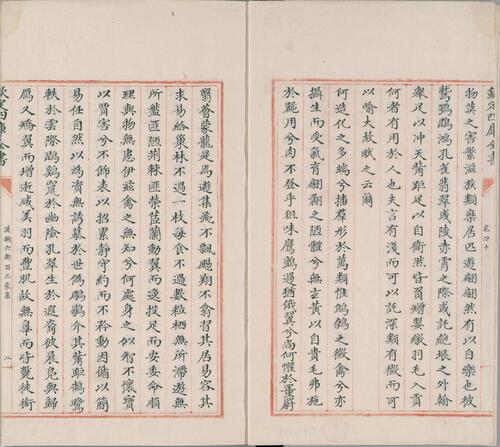 欽定四庫全書
卷四十
物莫之害繁滋族類桑居匹遊翩翩然有以自樂也彼
鷲鶚鵾鴻孔雀翡翠或陵赤霄之際或託絶垠之外翰
舉足以冲天觜距足以自衛然皆負矰嬰繳羽毛入貢
何者有用於人也夫言有淺而可以託深類有微而可
以喻大故賦之云爾
何造化之多端兮播羣形於萬類惟鷦鷯之微禽兮亦
攝生而受氣育翩翾之陋體兮無玄黃以自貴毛弗施
於器用兮肉不登乎俎味鷹鸇過猶俄翼兮尚何懼於罿罻
翳薈蒙蘢是焉遊集飛不飄颺翔不翕習其居易容其
求易給巢林不過一枝每食不過數粒棲無所滯遊無
所盤匪陋荆棘匪榮茝蘭動翼而逸投足而安委命順
理與物無患伊兹禽之無知兮何處身之似智不懷寶
以賈害兮不飾表以招累静守約而不矜動因循以簡
易任自然以為資無誘慕於世偽鵰鶡介其觜距鵠鷺
軼於雲際鵾雞竄於幽險孔翠生於遐裔彼晨鳬與歸
鴈又矯翼而增逝咸美羽而豐肌故無辠而皆斃徒銜
欽定四庫全書
漢魏六朝百三家集
二